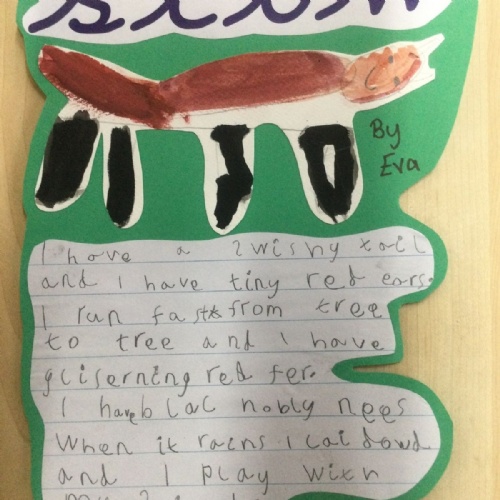 By
Eva
I have a swishy tail
and I have tiny red ears.
I run fast from tree
to tree and I have
gliserning red fer.
I have blac nobly nees
When it rains I
and I play with